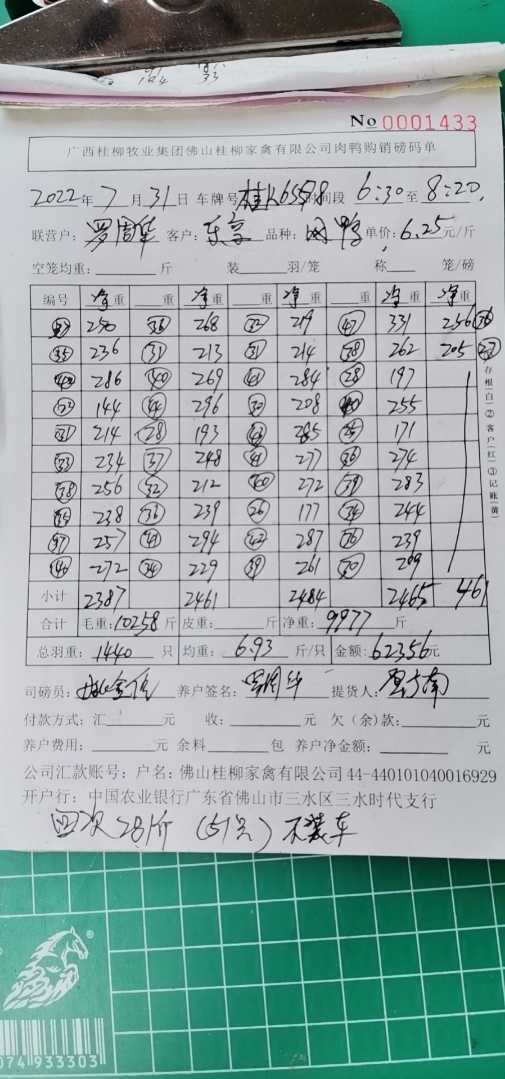 No 0001433
广西桂柳牧业集团佛山桂柳家禽有限公司肉鸭购销磅码单
2022年 7 月 31 日 车牌号 时间段 6:30 至 8:20
联营户: 罗周华 客户: 东享 品种: 肉鸭 单价: 6.25元/斤
空笼均重: 斤 装 羽/笼 称 笼/磅
编号 净重 重 净重 重 净重 重 净重 净重
250 268 32 219 47 331 256 36
35 236 31 213 31 214 38 262 205
286 40 269 284 28 197
144 296 30 208 255
31 214 28 193 285 25 171
33 234 37 248 277 36 274
38 256 32 212 40 272 39 283
238 36 239 26 177 34 244
37 257 294 42 287 36 239
40 272 34 229 39 261 30 209
小计 2387 2461 2484 2465 461
合计 毛重: 10258 斤 皮重: 斤 净重: 9977 斤
总羽重: 1440 只 均重: 6.93 斤/只 金额: 62356元
司磅员: 养户签名: 罗周华 提货人:
付款方式: 汇 元 收: 元 欠(余)款: 元
养户费用: 元 余料 包 养户净金额: 元
公司汇款账号: 户名: 佛山桂柳家禽有限公司 44-440101040016929
开户行: 中国农业银行广东省佛山市三水区三水时代支行
次 281斤 (51只) 不装车
存根(白)②客户(红)③记账(黄)
074 933303